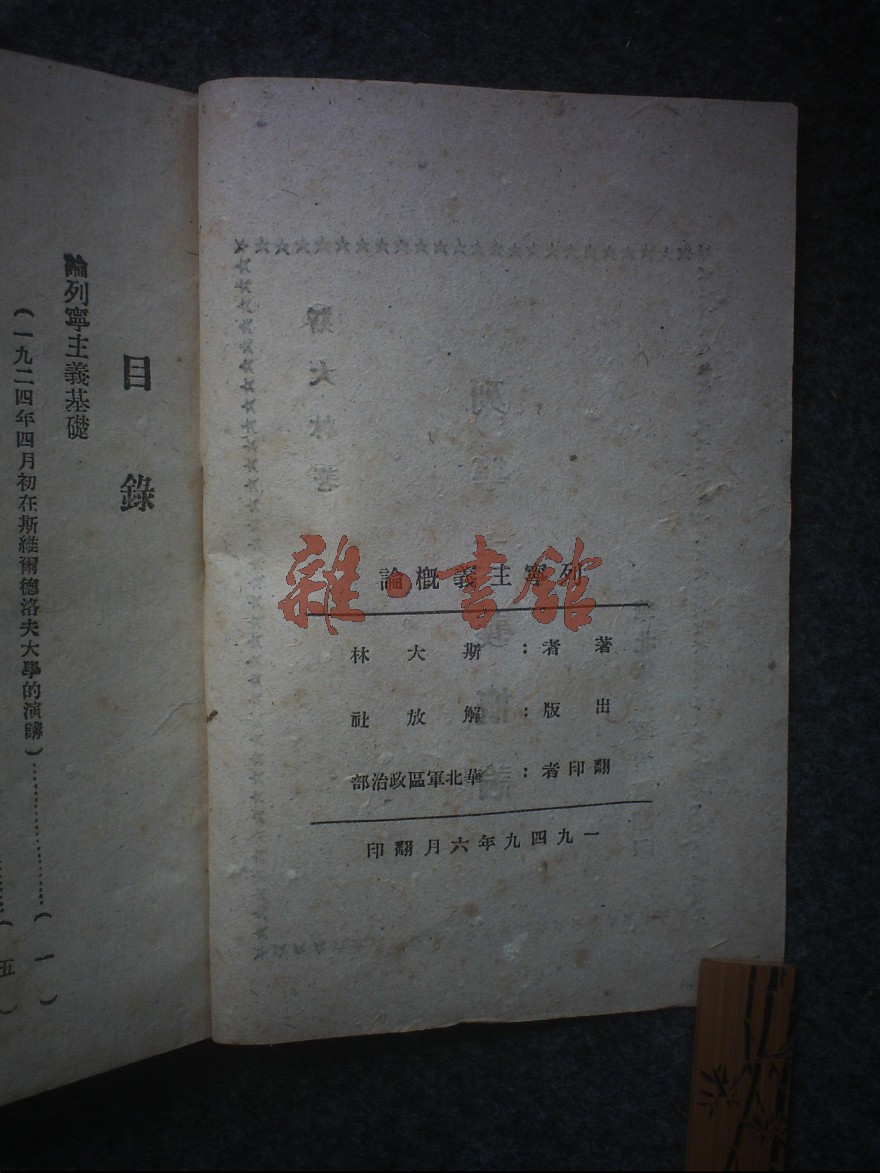 列寧主義概論
著者：斯大林
出版：解放社
翻印者：華北軍區政治部
一九四九年六月翻印
目錄
論列寧主義基礎
（一九二四年四月初在斯維爾德洛夫大學的演講）……………（一）
（五）
雜·書館